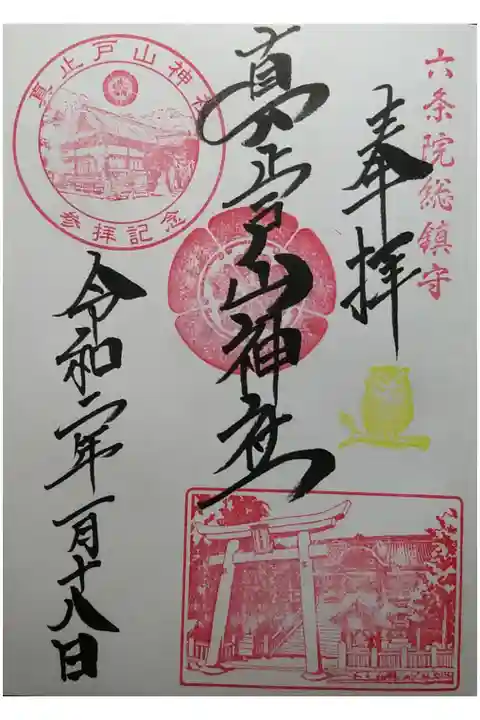 六条院総鎮守
奉拝
真止戸山神社
真止戸山神社
参拝記念
令和二年一月十八日